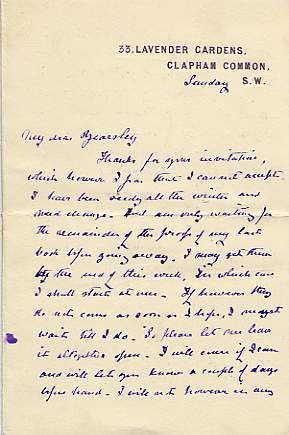 33, LAVENDER GARDENS,
CLAPHAM COMMON,
Sunday S.W.
My dear Yearsley
Thanks for your invitation,
which however I fear that I cannot accept.
I have been seedy all the winter and
need change. And am only waiting for
the remainder of the proofs of my last
book before going away. I may get them
by the end of this week, in which case
I shall start at once. If however they
do not come as soon as I hope, I must
wait till I do. So please let me leave
it altogether open. I will come if I can
and will let you know a couple of days
before hand. I will not however in any